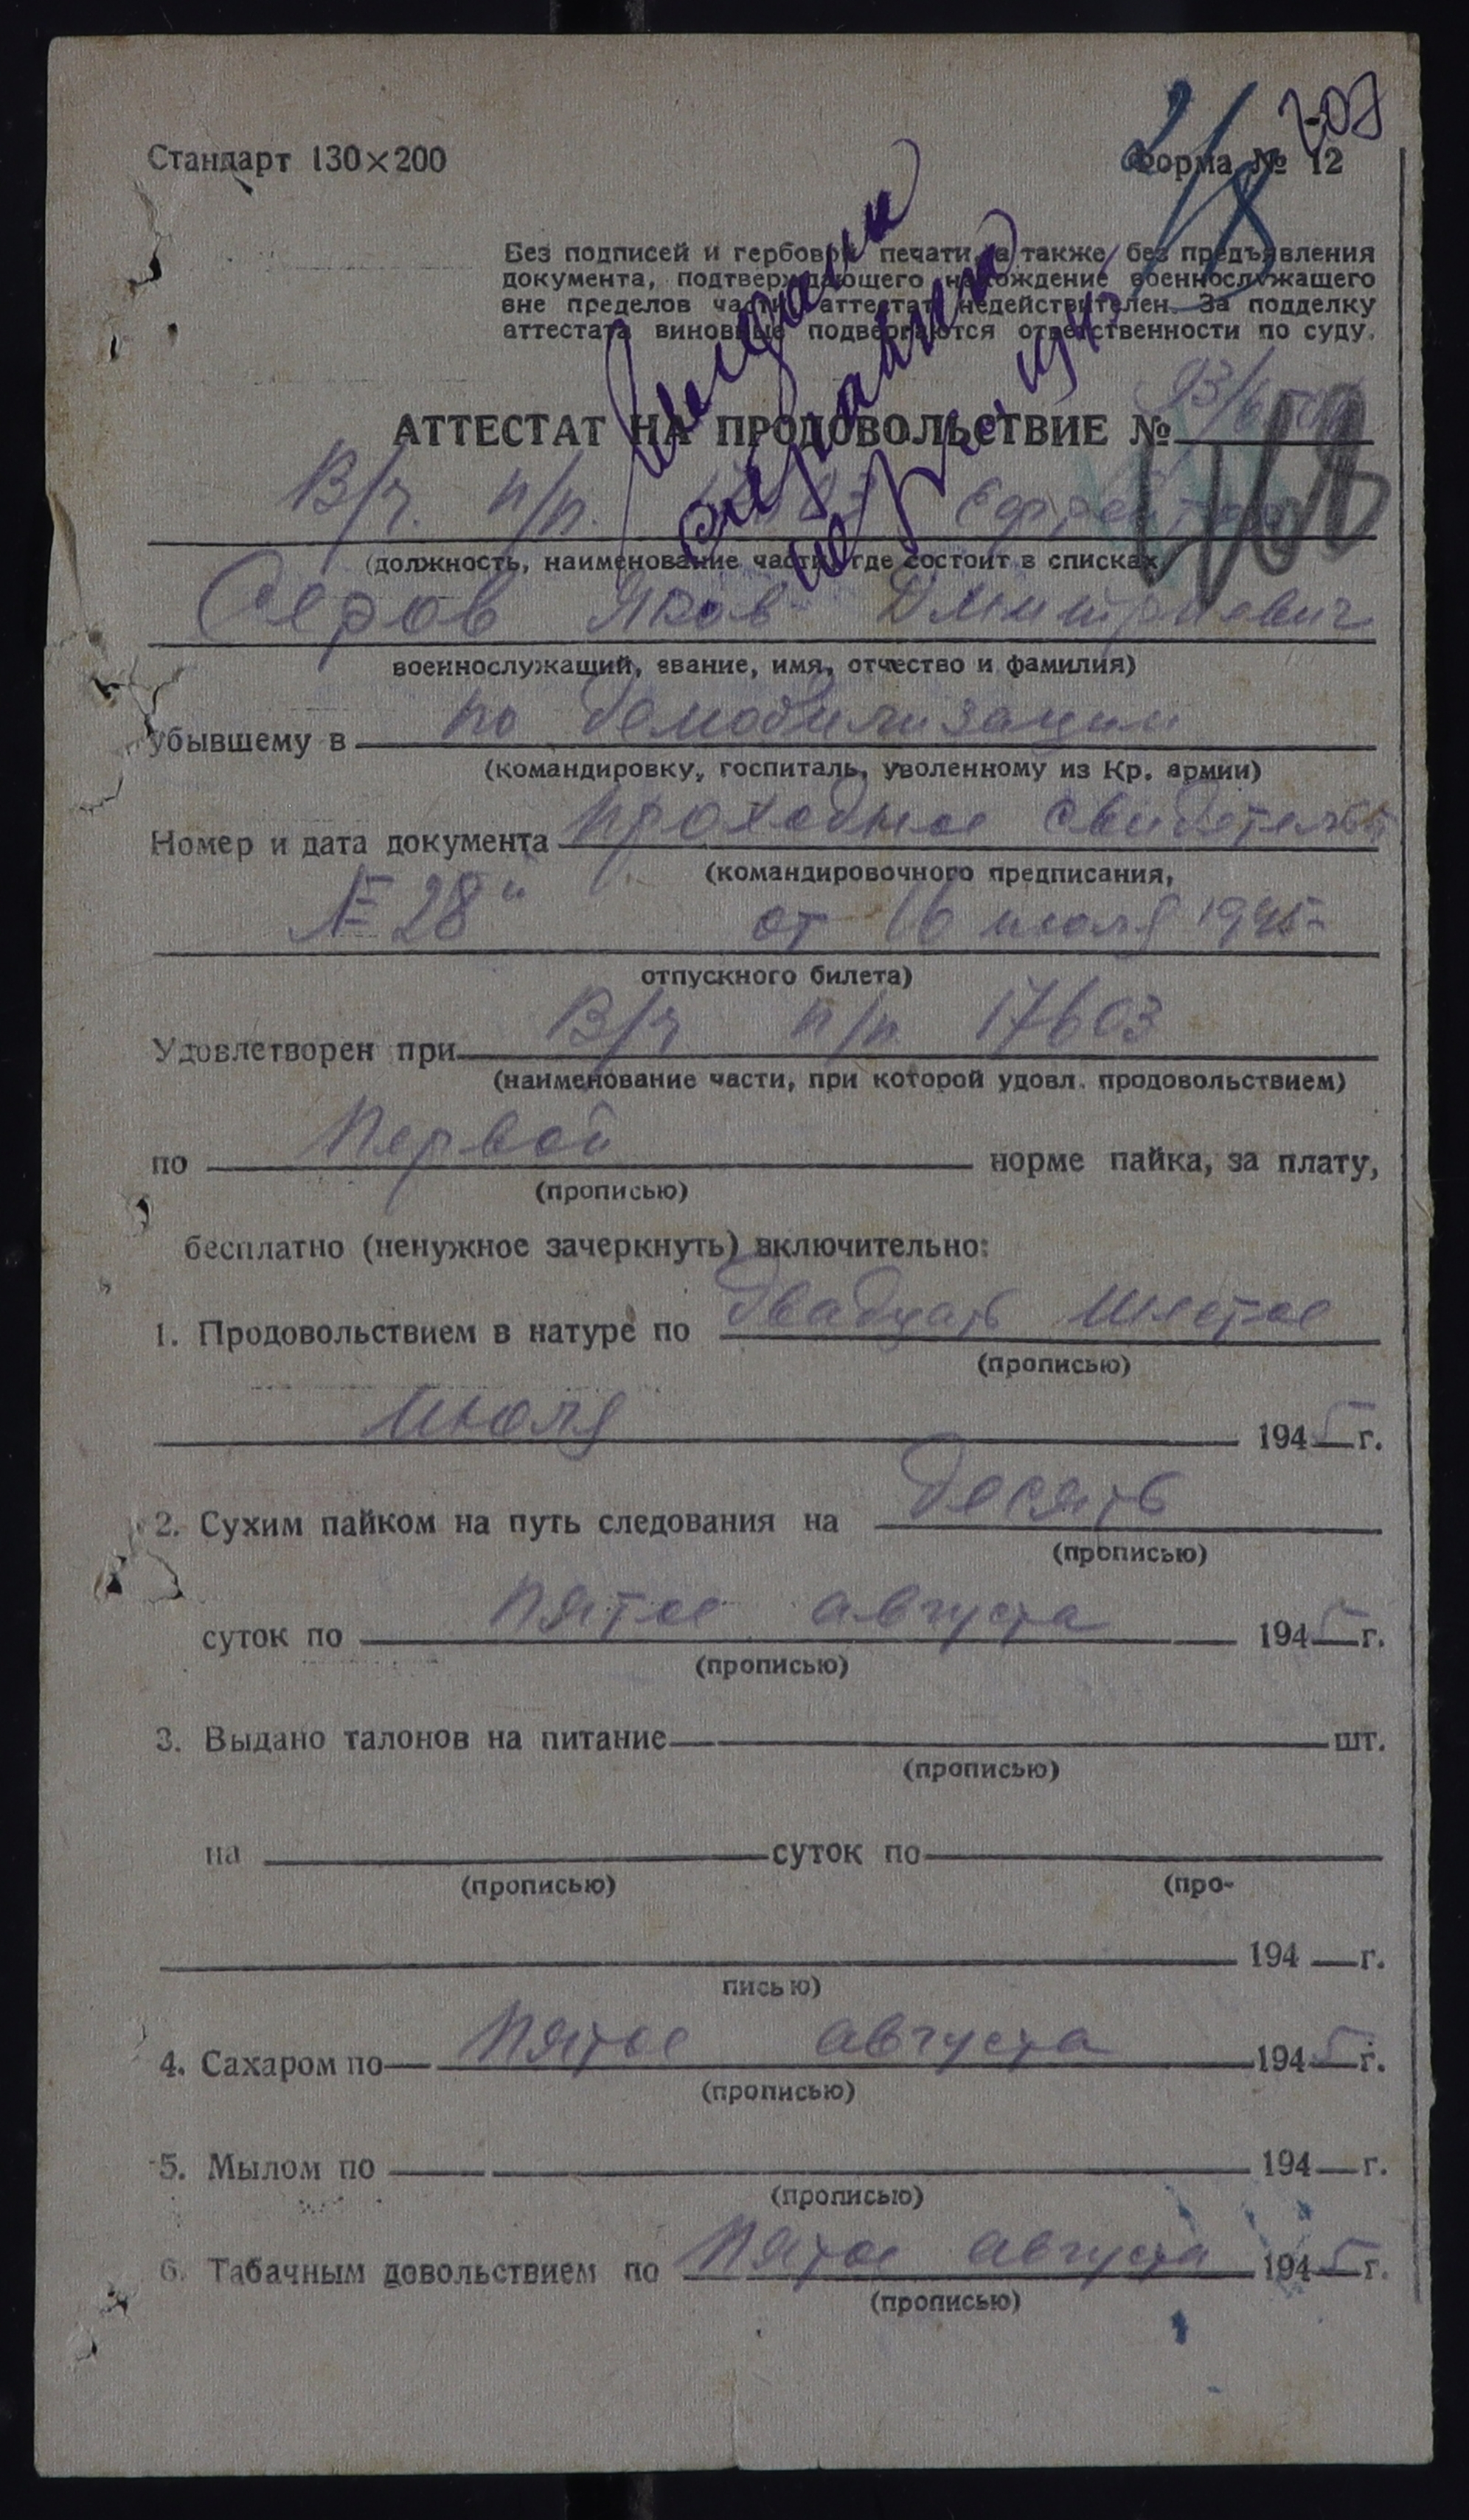 207
Стандарт 130×200
Форма № 12
Без подписей и гербовой печати, а также без предъявления
документа, подтверждающего нахождение военнослужащего
вне пределов части аттестат недействителен. За подделку
аттестата виновные подвергаются ответственности по суду.
АТТЕСТАТ НА ПРОДОВОЛЬСТВИЕ №
В/ч. п/п. Ефрейтор
(должность, наименование части, где состоит в списках,
Серов Яков Дмитриевич
военнослужащий, звание, имя, отчество и фамилия)
убывшему в по демобилизации
(командировку, госпиталь, уволенному из Кр. армии)
Номер и дата документа проходное свидетельст
(командировочного предписания,
№ 28" от 16 июля 1945
отпускного билета)
Удовлетворен при В/ч п/п 17603
(наименование части, при которой удовл. продовольствием)
по Первой норме пайка, за плату,
(прописью)
бесплатно (ненужное зачеркнуть) включительно:
1. Продовольствием в натуре по двадцать шестое
(прописью)
Июля 1945 г.
2. Сухим пайком на путь следования на десять
(прописью)
суток по Пятое августа 1945 г.
(прописью)
3. Выдано талонов на питание шт.
(прописью)
на суток по
(прописью) (про-
194 г.
писью)
4. Сахаром по Пятое августа 1945 г.
(прописью)
5. Мылом по 194 г.
(прописью)
6. Табачным довольствием по Пятое августа 1945 г.
(прописью)